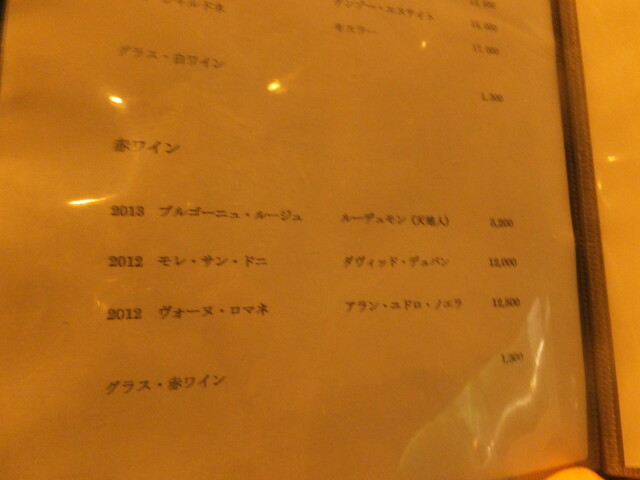 シャルドネ
ケンゾー・エステイト
キスラー
グラス・白ワイン
1,300
赤ワイン
2013 ブルゴーニュ・ルージュ ルーデュモン(天地人)
2012 モレ・サン・ドニ ダヴィッド・デュバン 12,000
2012 ヴォーヌ・ロマネ アラン・ユドロ・ノエラ 12,500
グラス・赤ワイン
1,300